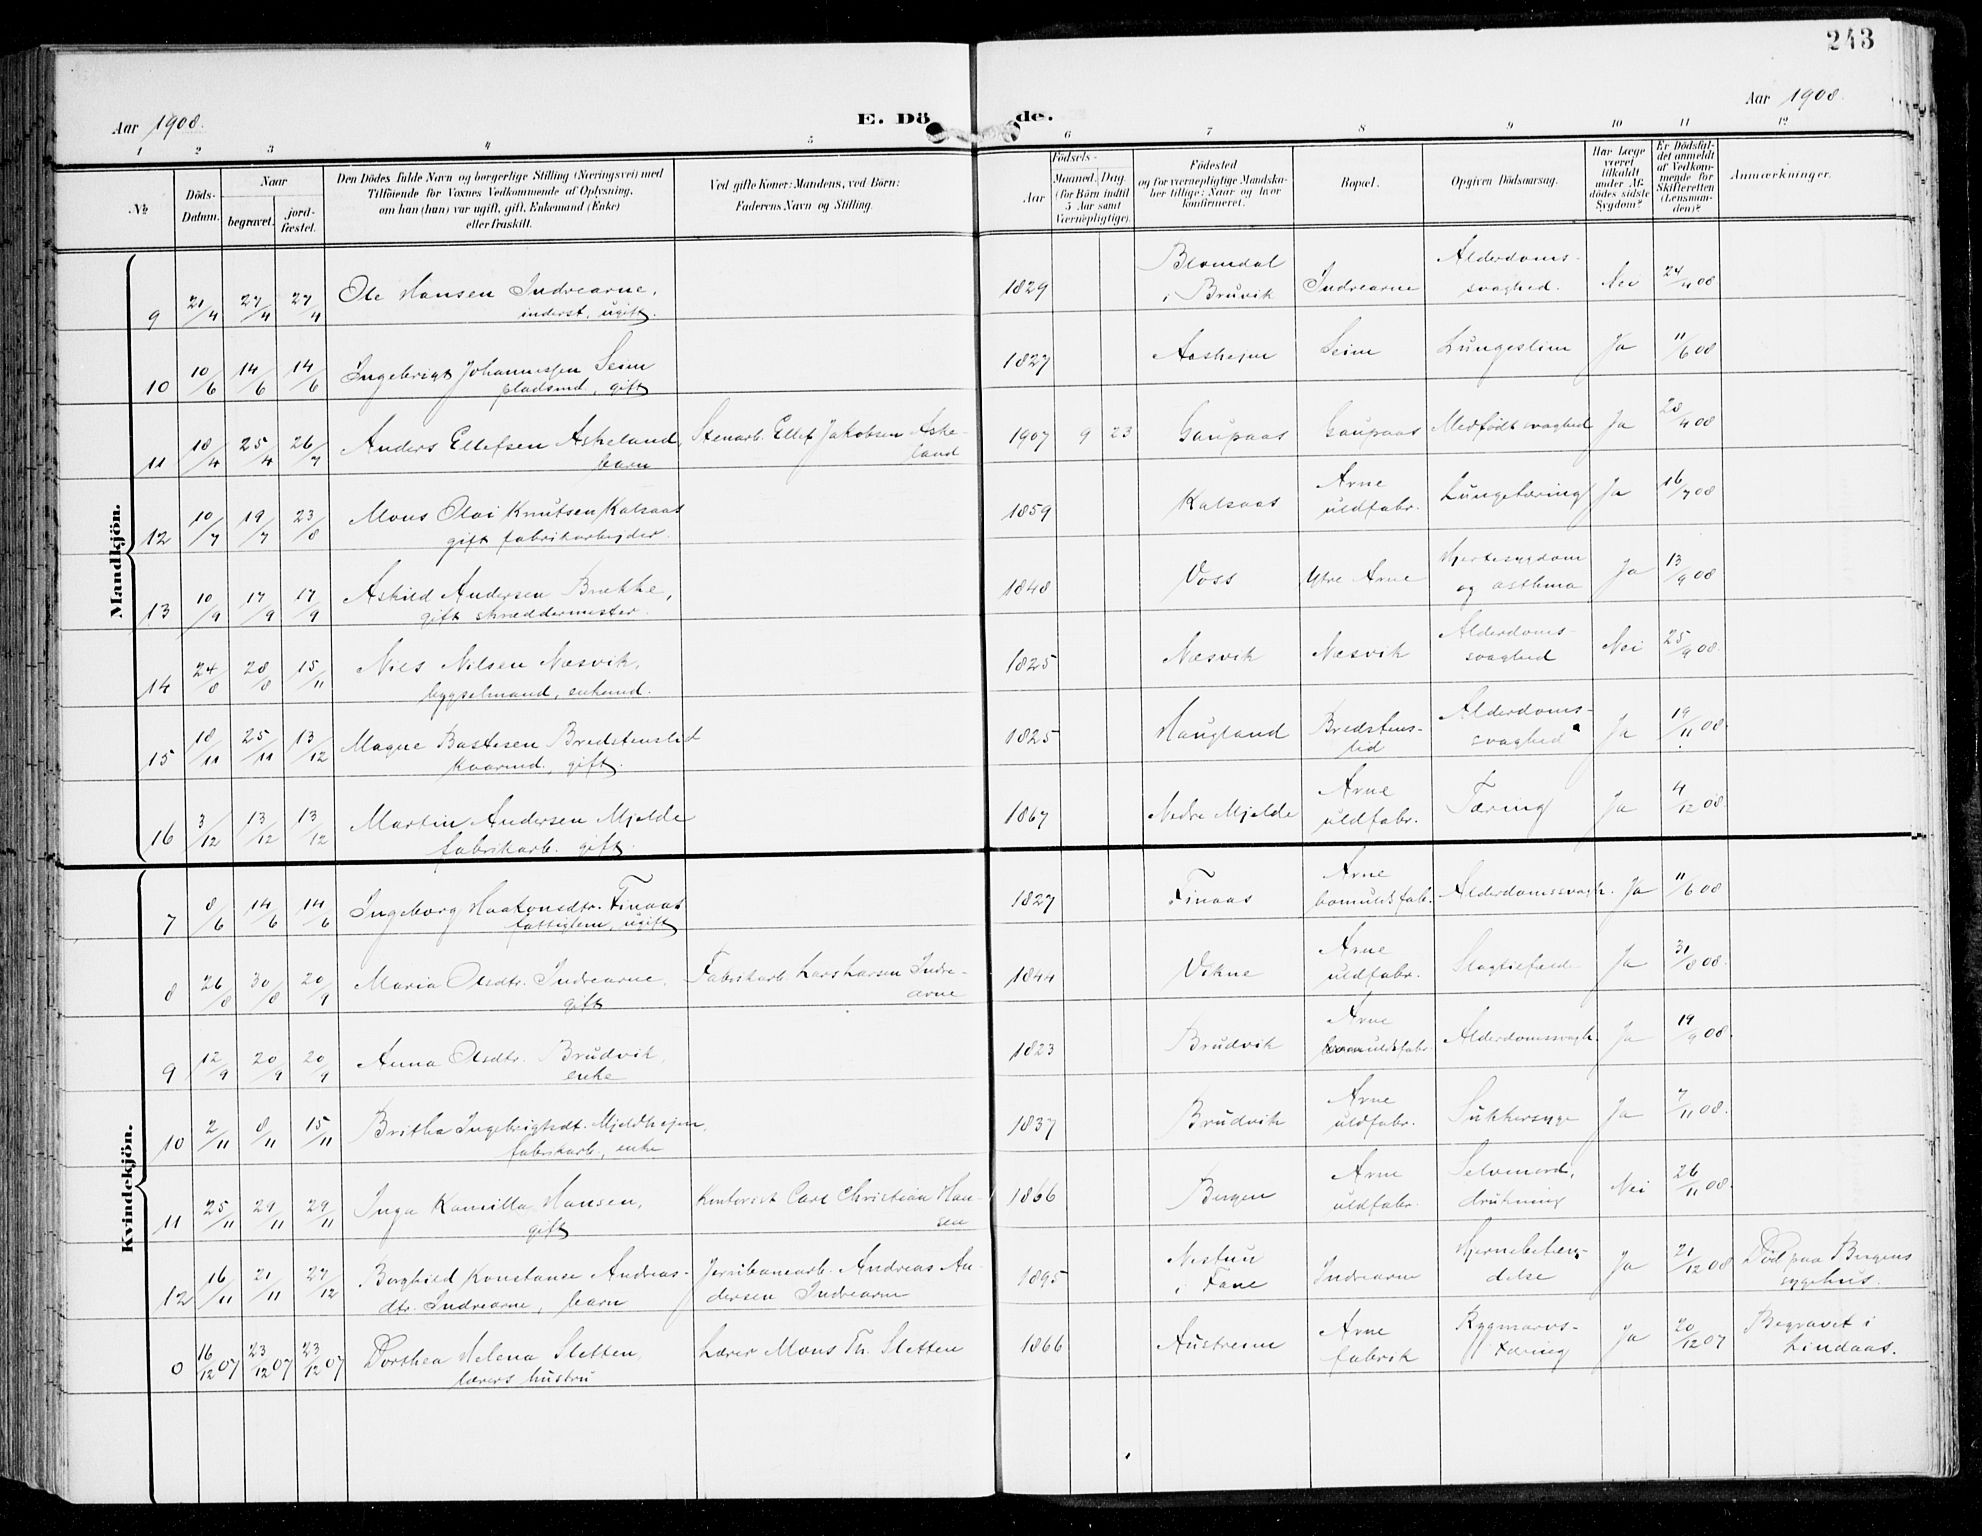 243
Aar 1908.
E. Dö de.
Aar 1908.
1 2 3 4 5 6 7 8 9 10 11 12
№
Döds-
Datum.
Naar
begravet.
jord-
fæstet.
Den Dödes fulde Navn og borgerlige Stilling (Næringsvei) med
Tilföiende for Voxnes Vedkommende af Oplysning,
om han (hun) var ugift, gift, Enkemand (Enke)
eller fraskilt.
Ved gifte Koner: Mandens, ved Börn:
Faderens Navn og Stilling.
Födsels-
Aar
Maaned. Dag.
(for Börn indtil
5 Aar samt
Værnepligtige).
Födested
og for værnepligtige Mandska-
ber tillige: Naar og hvor
konfirmeret.
Bopæl.
Opgiven Dödsaarsag.
Har Læge
været
tilkaldt
under Af-
dödes sidste
Sygdom?
Er Dödsfal-
det anmeldt
af Vedkom-
mende for
Skifteretten
(Lensman-
den)?
Anmærkninger.
Mandkjön.
9 21/4 27/4 27/4 Ole Hansen Indrearne, 1829 Blomdal Indrearne Alderdoms- Nei 24/4 08
inderst, ugift. i Bruvik svaghed.
10 10/6 14/6 14/6 Ingebrigt Johannessen Seim 1827 Aasheim Seim Lungeslim Ja 11/6 08
pladsmd, gift
11 18/4 25/4 26/7 Anders Ellefsen Askeland, Stenarb. Ellef Jakobsen Aske- 1907 9 23 Gaupaas Gaupaas Medfødt svaghed Ja 28/4 08
barn land
12 10/7 19/7 23/8 Mons Olai Knutsen Kalsaas 1859 Kalsaas Arne Lungetæring Ja 16/7 08
gift fabrikarbejder. uldfabr.
13 10/9 17/9 17/9 Askild Andersen Brække, 1848 Voss Ytre Arne Hjertesygdom Ja 13/9 08
gift skræddermester. og asthma
14 24/8 28/8 15/11 Nils Nilsen Næsvik, 1825 Næsvik Næsvik Alderdoms- Nei 25/9 08.
bygselmand, enkemd. svaghed
15 18/11 25/11 13/12 Magne Bastesen Bredstenslid 1825 Haugland Bredstens- Alderdoms- Ja 19/11 08
kaarmd, gift. lid svaghed
16 3/12 13/12 13/12 Martin Andersen Mjelde 1867 Nedre Mjelde Arne Tæring Ja 4/12 08.
fabrikarb. gift. uldfabr.
Kvindekjön.
7 8/6 14/6 14/6 Ingeborg Haakonsdtr. Finaas 1827 Finaas Arne Alderdomssvagh. Ja 11/6 08
fattiglem, ugift bomuldsfab.
8 26/8 30/8 20/9 Maria Olsdtr. Indrearne, Fabrikarb Lars Larsen Indre- 1844 Vikne Arne Slagtilfæld Ja 31/8 08.
gift arne uldfabr.
9 12/9 20/9 20/9 Anna Olsdtr. Brudvik, 1823 Brudvik Arne Alderdomssvagh. Ja 19/9 08.
enke bomuldsfabr.
10 2/11 8/11 15/11 Britha Ingebrigtsdt. Mjeldhejen, 1837 Brudvik Arne Sukkersyge Ja 7/11 08.
fabrikarb, enke uldfabr.
11 25/11 29/11 29/11 Inga Kamilla Hansen, Kontorist Carl Christian Han- 1866 Bergen Arne Selvmord, Nei 26/11 08.
gift sen uldfabr. drukning
12 16/11 21/11 27/12 Borghild Konstanse Andreas- Jernbanearb. Andreas An- 1895 Nestun Indrearne Hjernebetæn- Ja 21/12 08 Død paa Bergens
dtr. Indrearne, barn dersen Indrearne i Fane delse sygehus.
0 16/12 07 23/12 07 23/12 07 Dorthea Helena Sletten, Lærer Mons Th. Sletten 1866 Austreim Arne Rygmarvs- Ja 20/12 07 Begravet i
lærers hustru fabrik tæring Lindaas.